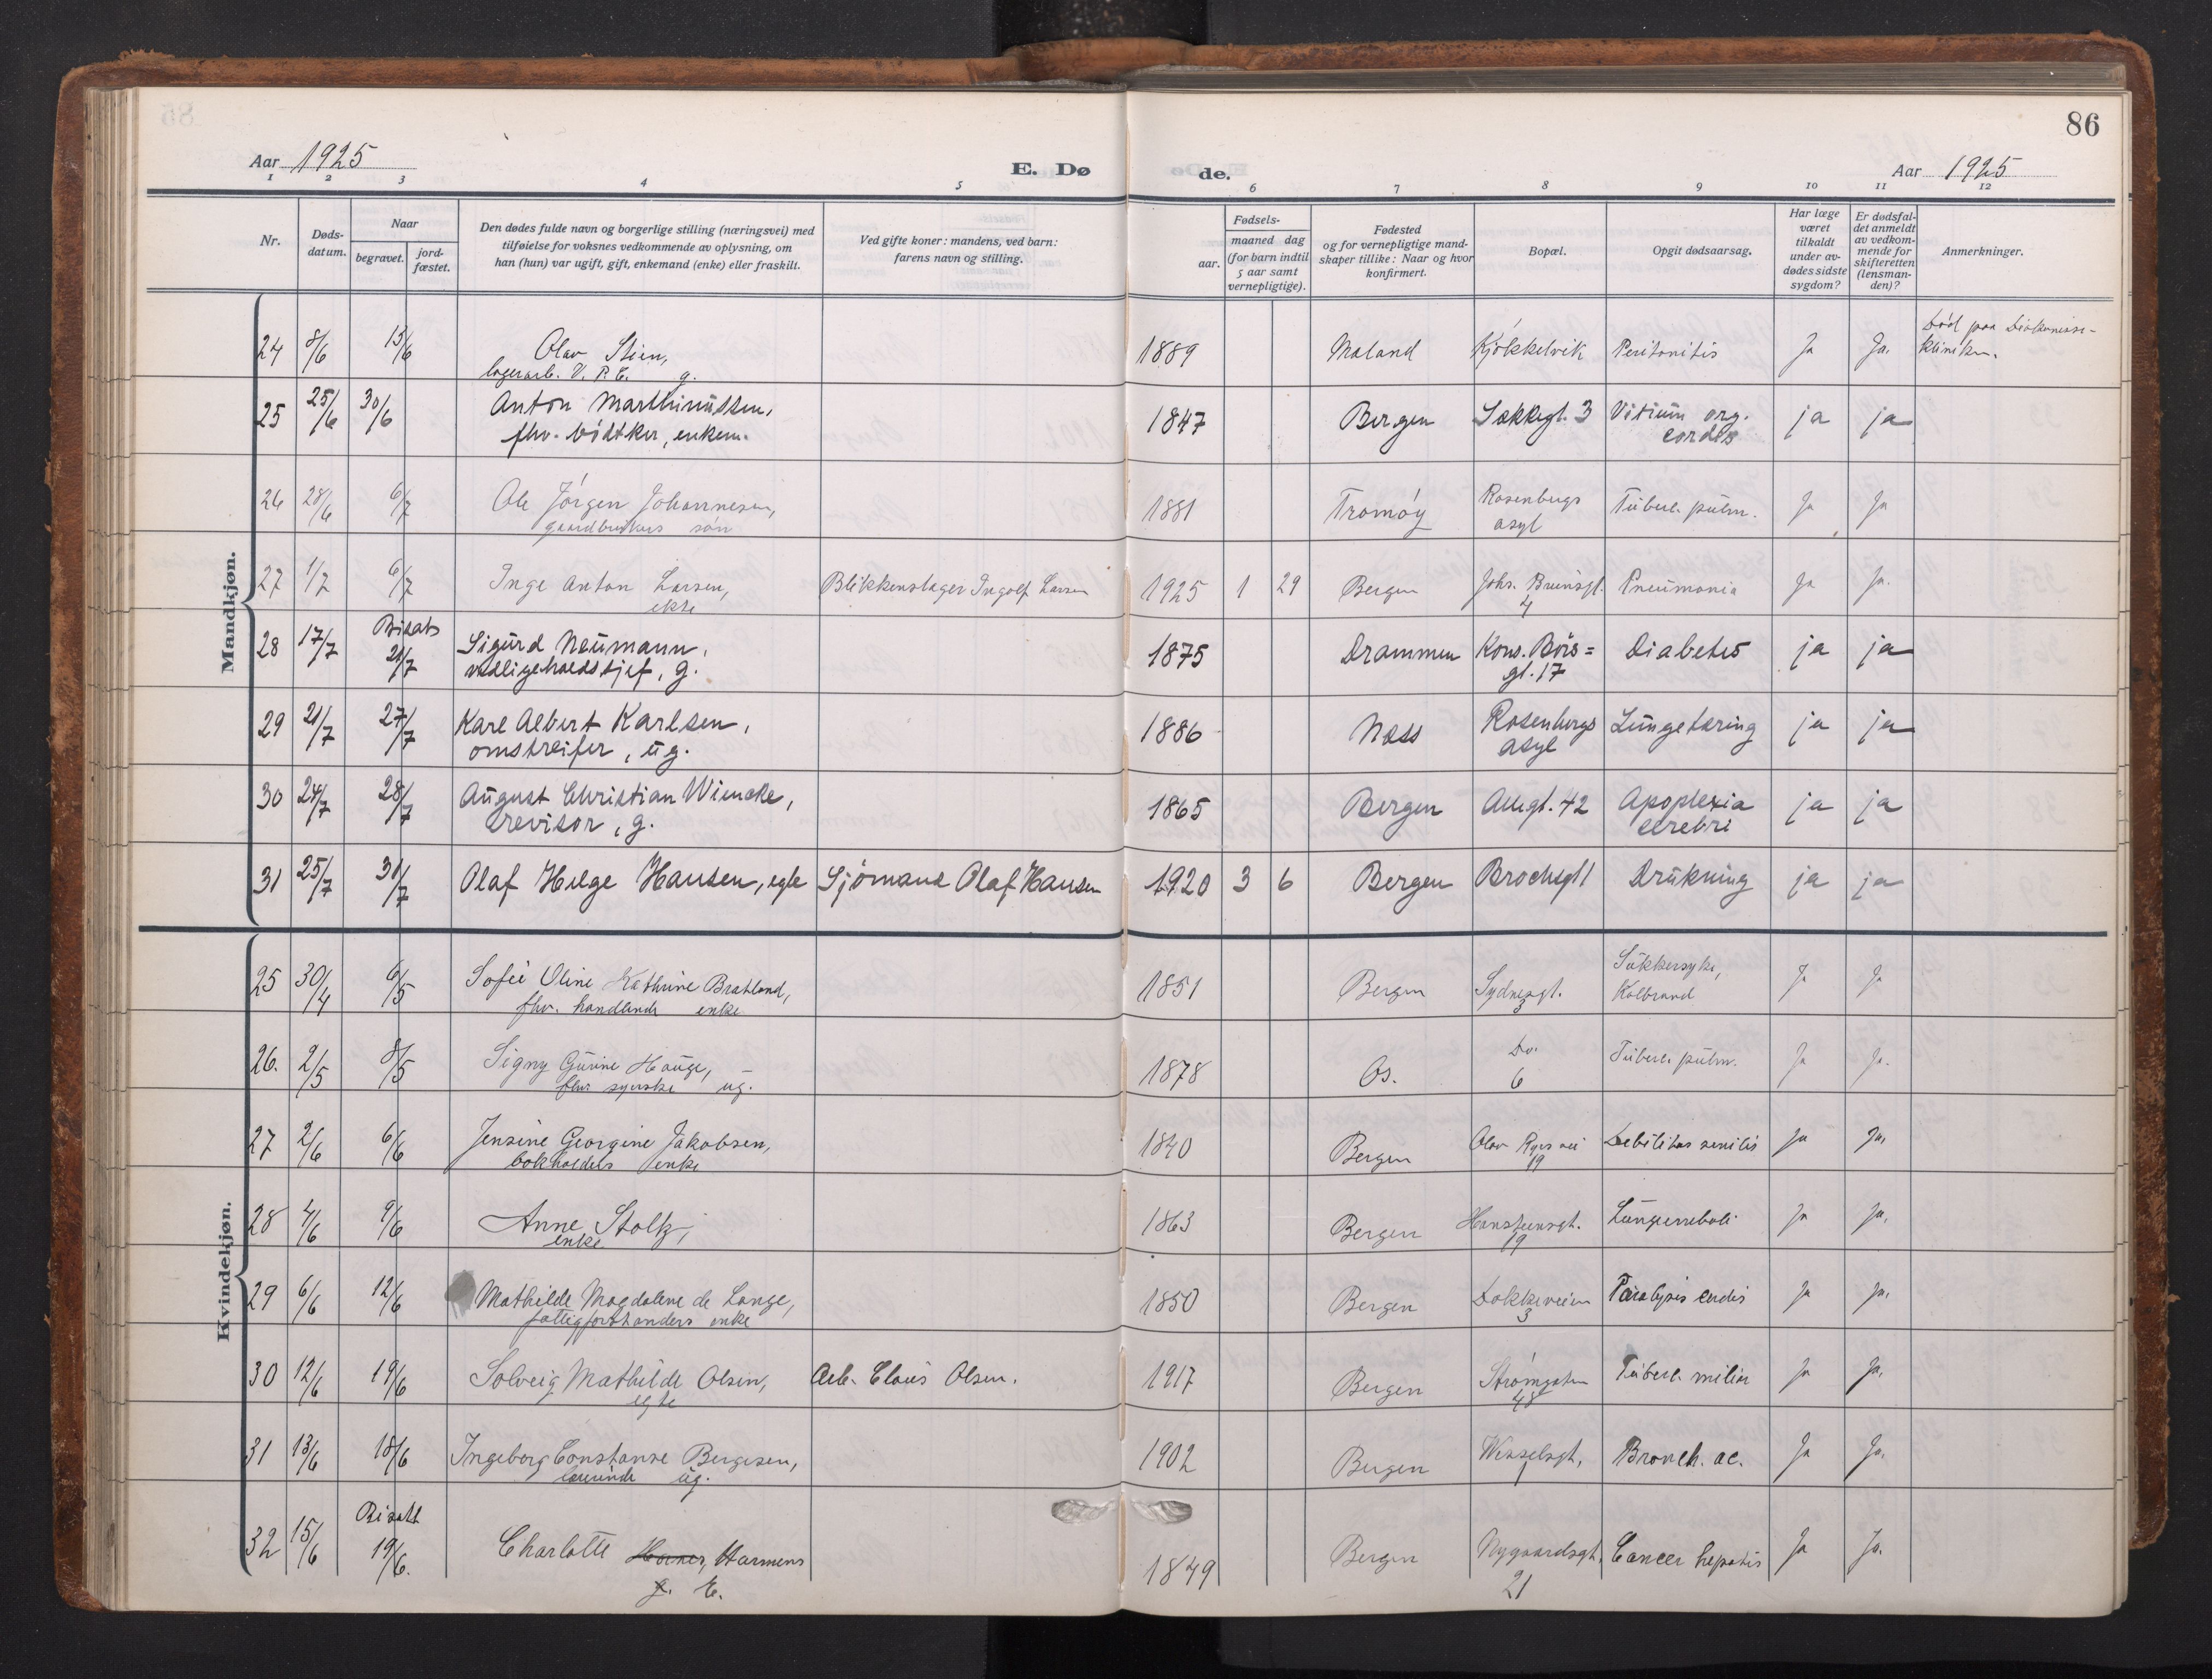 86
Aar 1925
E. Dø
de.
Aar 1925
1 2 3 4 5 6 7 8 9 10 11 12
Nr.
Døds-
datum.
Naar
begravet.
jord-
fæstet.
Den dødes fulde navn og borgerlige stilling (næringsvei) med
tilføielse for voksnes vedkommende av oplysning, om
han (hun) var ugift, gift, enkemand (enke) eller fraskilt.
Ved gifte koner: mandens, ved barn:
farens navn og stilling.
Fødsels-
aar.
maaned dag
(for barn indtil
5 aar samt
vernepligtige).
Fødested
og for vernepligtige mand-
skaper tillike: Naar og hvor
konfirmert.
Bopæl.
Opgit dødsaarsag.
Har læge
været
tilkaldt
under av-
dødes sidste
sygdom?
Er dødsfal-
det anmeldt
av vedkom-
mende for
skifteretten
(lensman-
den)?
Anmerkninger.
Mandkjøn.
24 8/6 15/6 Olav Stien, 1889 Kjøkkelvik Peritonitis Ja Ja. Død paa
lagerarb. g.
25 25/6 30/6 Anton Marthinussen, 1847 Bergen Sækkegt. 3 Vitium org. ja ja
fhv. bødtker, enkem. cordis
26 28/6 6/7 Ole Jørgen Johannesen, 1881 Tromøy Rosenbergs Tuberc. pulm. Ja Ja
gaardbrukers søn asyl
27 1/7 6/7 Inge Anton Larsen, Blikkenslager Ingolf Larsen 1925 1 29 Bergen Johs. Brunsgt. Pneumonia Ja Ja.
ekte 4
28 17/7 Bisats Sigurd Neumann, 1875 Drammen Kons. Børs= Diabetes ja ja
21/7 vedligeholdstjef, g. gt. 17
29 21/7 27/7 Karl Albert Karlsen, 1886 Næss Rosenbergs Lungetæring ja ja
omstreifer, ug. asyl
30 24/7 28/7 August Christian Wiencke, 1865 Bergen Allegt. 42 Apoplexia ja ja
revisor, g. cerebri
31 25/7 31/7 Olaf Helge Hansen, egte Sjømand Olaf Hansen 1920 3 6 Bergen Brochsgt 1 Drukning ja ja
Kvindekjøn.
25 30/4 6/5 Sofie Oline Kathrine Bratland, 1851 Bergen Sydnesgt. Sukkersyke, Ja Ja
fhv. handlende enke 3 Kolbrand
26. 2/5 8/5 Signy Gurine Hauge, 1878 Os. Do. Tuberc. pulm. Ja Ja.
fhv syerske ug. 6
27 2/6 6/6 Jensine Georgine Jakobsen, 1840 Bergen Olav Ryes vei Debilitas senilis Ja Ja.
bokholders enke 19
28 4/6 9/6 Anne Stoltz, 1863 Bergen Hansteensgt. Lungeemboli Ja Ja.
enke 19
29 6/6 12/6 Mathilde Magdalene de Lange, 1850 Bergen Dokkeveien Paralysis cordis Ja Ja.
fattigforstanders enke 3
30 12/6 19/6 Solveig Mathilde Olsen, Arb. Claus Olsen. 1917 Bergen Strømgaten Tuberc. miliar Ja Ja.
egte 48
31 13/6 18/6 Ingeborg Constanse Bergesen, 1902 Bergen Wesselsgt, Bronch. ac. Ja Ja.
lærerinde ug. 1
32 15/6 Bisatt Charlotte Harmens 1849 Bergen Nygaardsgt, Cancer hepatis Ja Ja.
19/6. g. E. 21